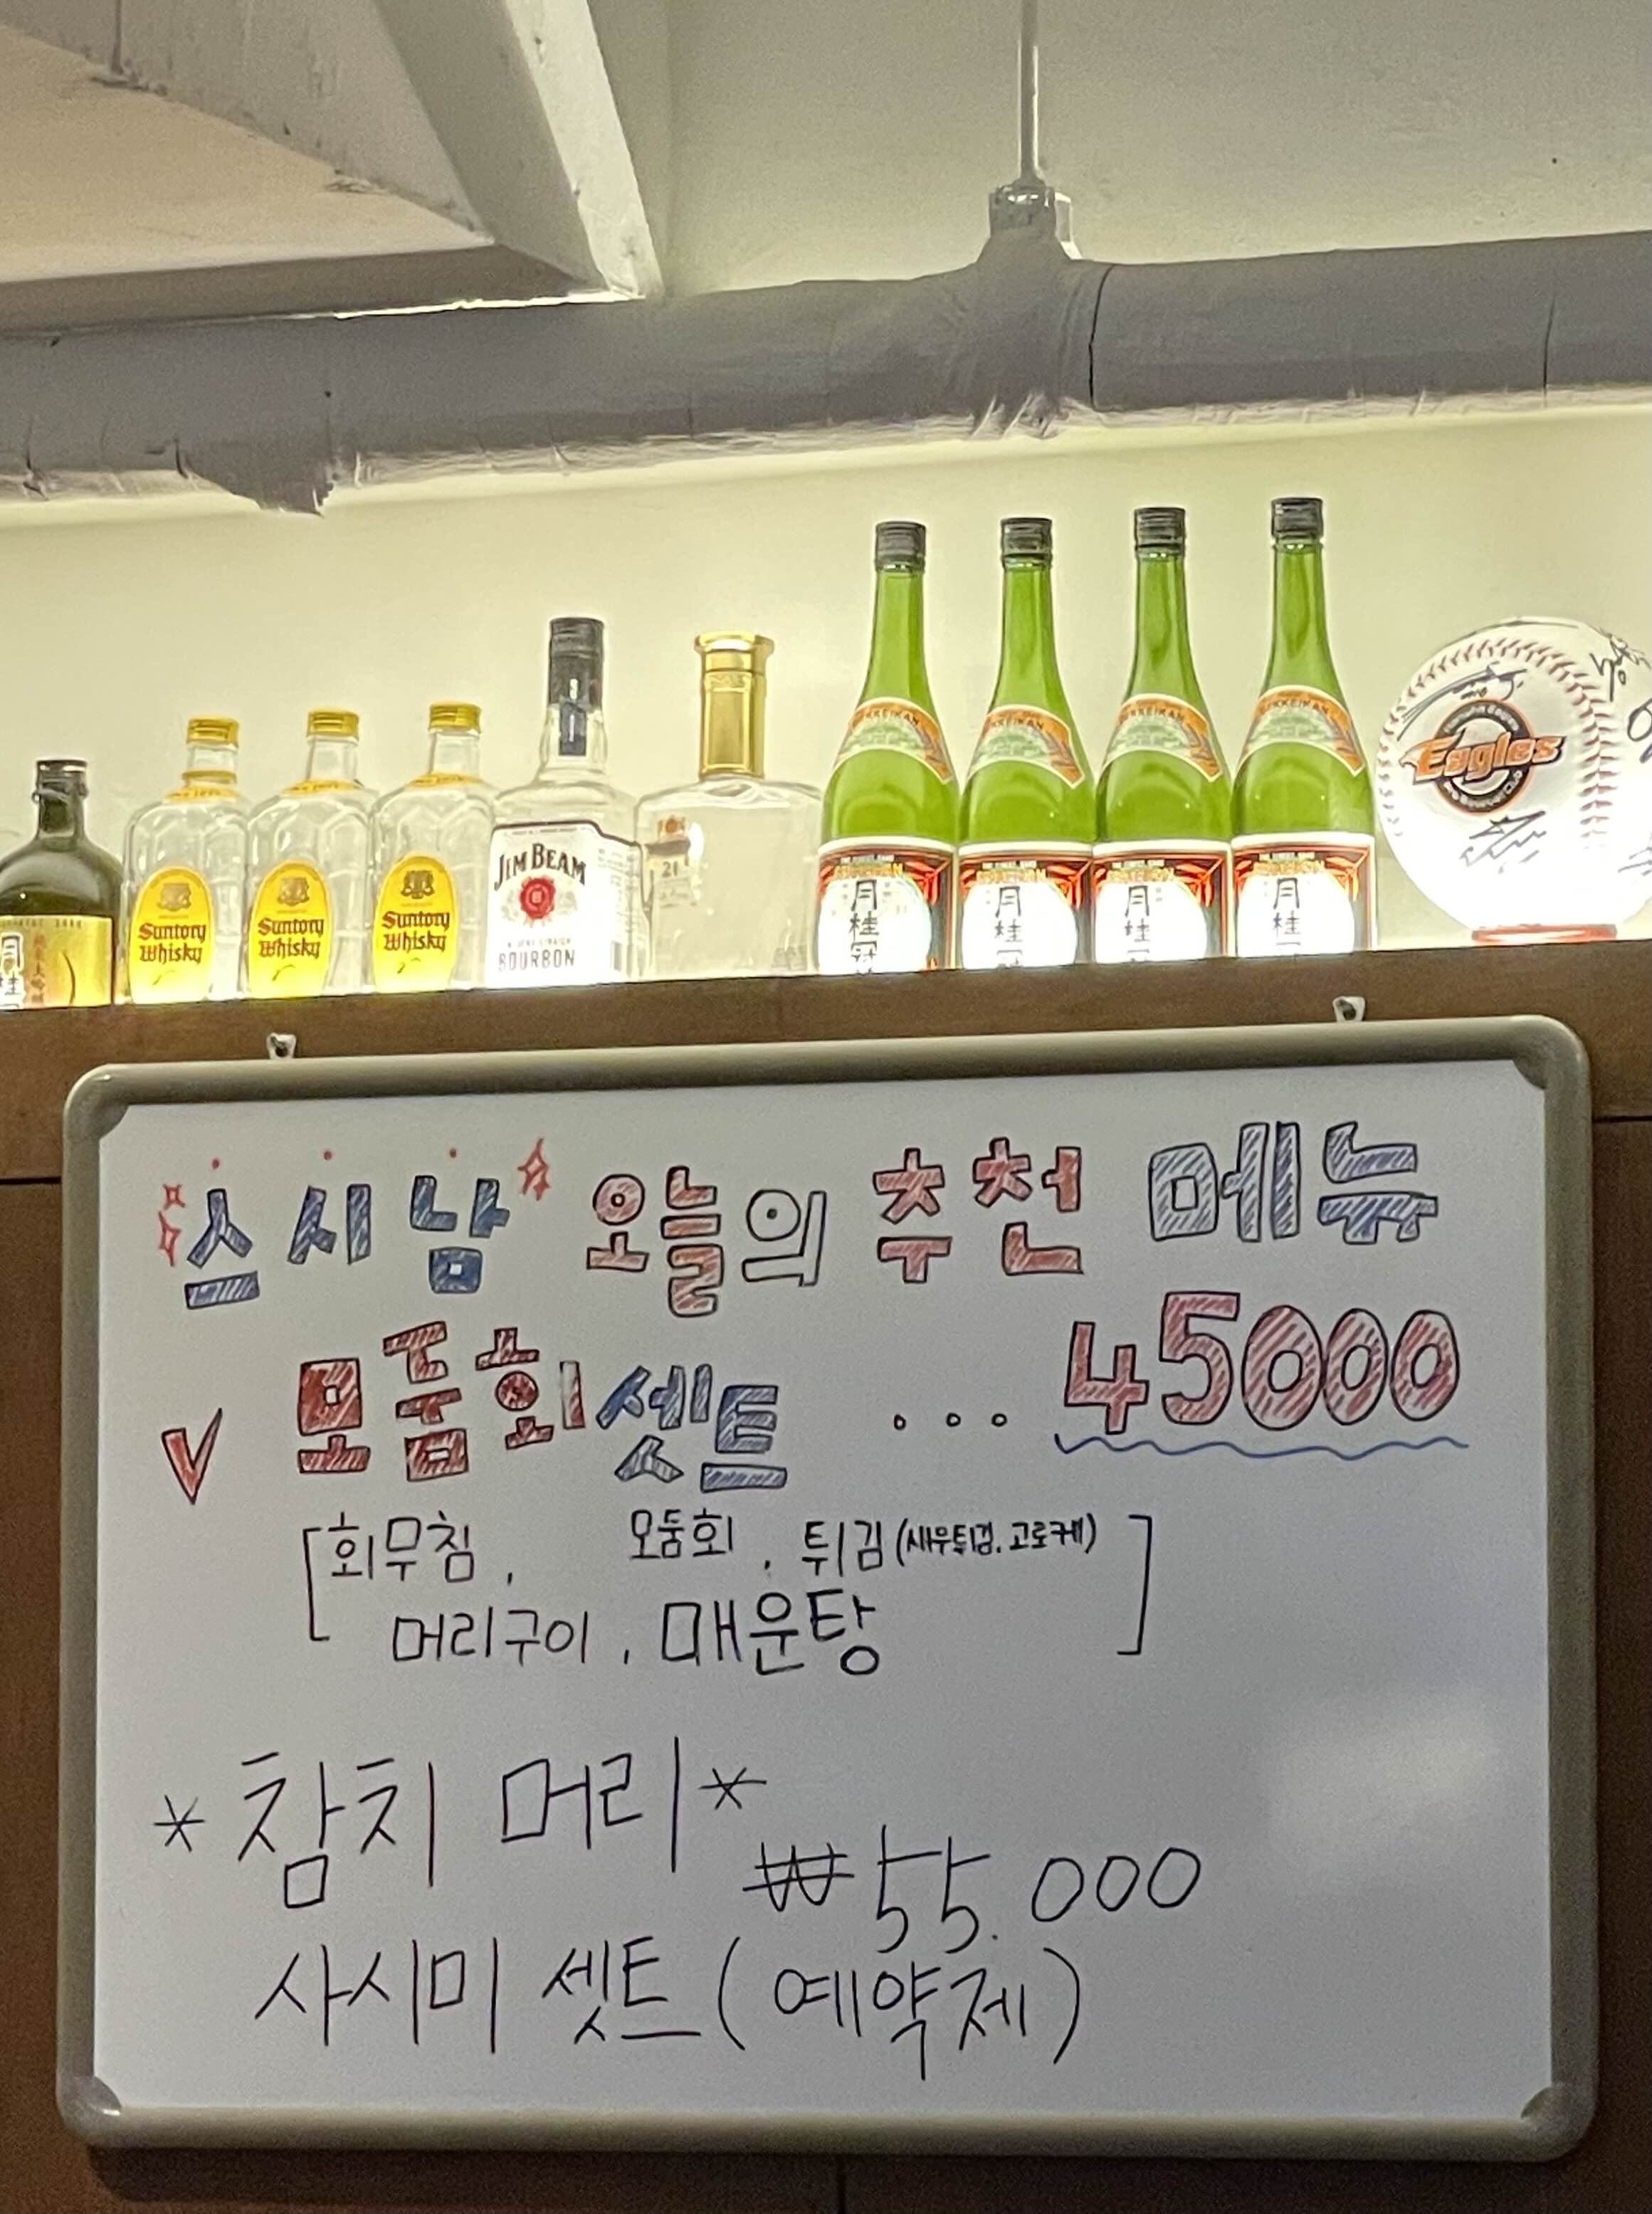 Suntory Whisky
Suntory Whisky
Suntory Whisky
JIM BEAM
BOURBON
21
GEKKEIKAN
月桂冠
月桂
月桂
月桂
月桂
Eagles
스시남 오늘의 추천 메뉴
V 모둠회셋트 ... 45000
[회무침, 모둠회, 튀김(새우튀김.고로케)
머리구이, 매운탕]
*참치 머리*
₩55.000
사시미 셋트(예약제)